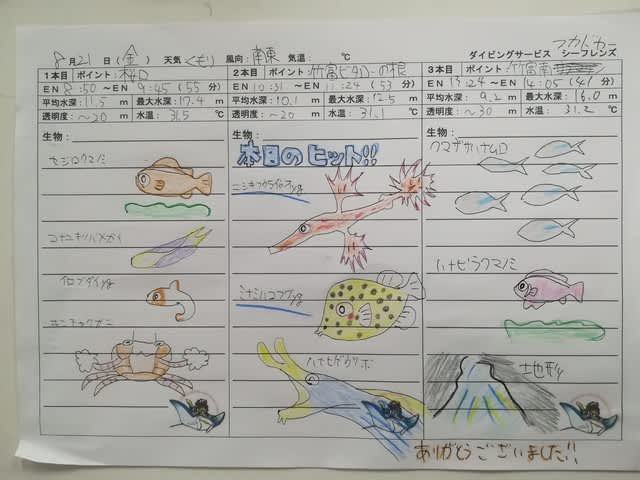 8月21日(金) 天気 くもり 風向: 南東 気温: ℃
ダイビングサービス シーフレンズ
1本目 ポイント: 桜口
EN 8:50 ~EN 9:45 (55分)
平均水深: 11.5 m 最大水深: 17.4 m
透明度: ~20 m 水温: 31.5 ℃
生物:
セジロクマノミ
コナユキツバメガイ
イロブダイyg
キンチャクガニ
2本目 ポイント: 竹富ビタローの根
EN 10:31 ~EN 11:24 (53分)
平均水深: 10.1 m 最大水深: 12.5 m
透明度: ~20 m 水温: 31.1 ℃
生物:
本日のヒット!!
ミナミハコフグyg
ハナヒゲウツボ
3本目 ポイント: 竹富南
EN 13:24 ~EN 14:05 (41分)
平均水深: 9.2 m 最大水深: 16.0 m
透明度: ~30 m 水温: 31.2 ℃
生物:
クマザサハナムロ
ハナビラクマノミ
地形
ありがとうございました!!